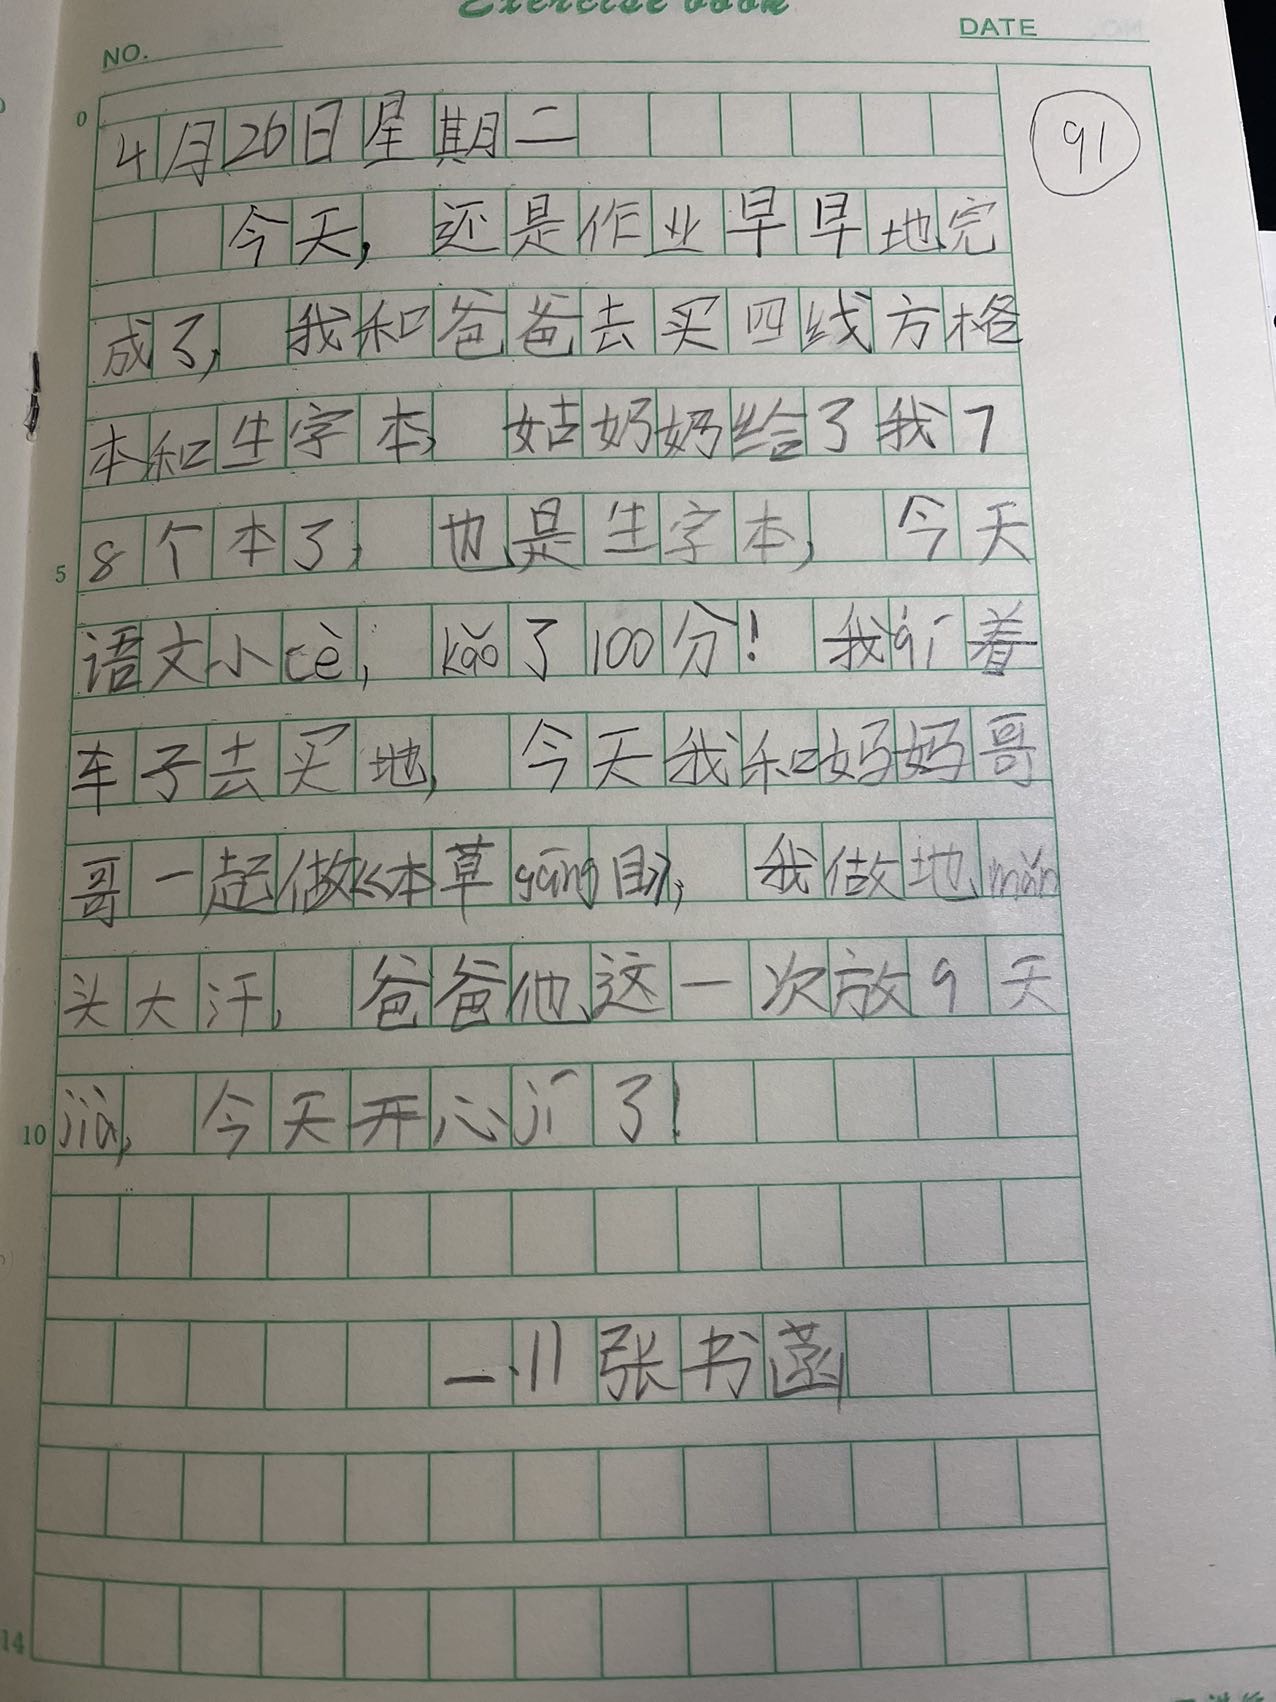 Exercise book
NO.
DATE
0
4月26日星期二
91
今天,还是作业早早地完
成了,我和爸爸去买四线方格
本和生字本,姑奶奶给了我7
8个本了,也是生字本,今天
5
语文小cè,kǎo了100分!我qí着
车子去买地,今天我和妈妈哥
哥一起做《本草gāng目》,我做地mǎn
头大汗,爸爸他这一次放9天
jià,今天开心jí了!
10
一.11张书菡
14